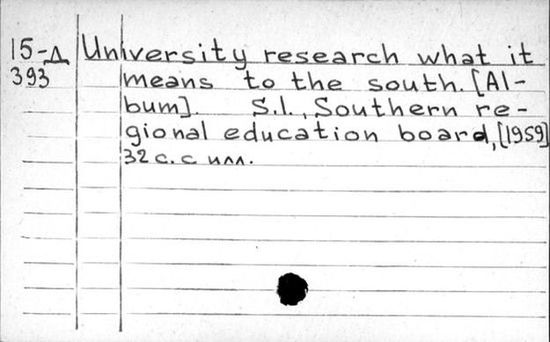 15-Д University research what it
393 means to the south. [Al-
bum]. S.l., Southern re-
gional education board, [1959]
32 с. с илл.